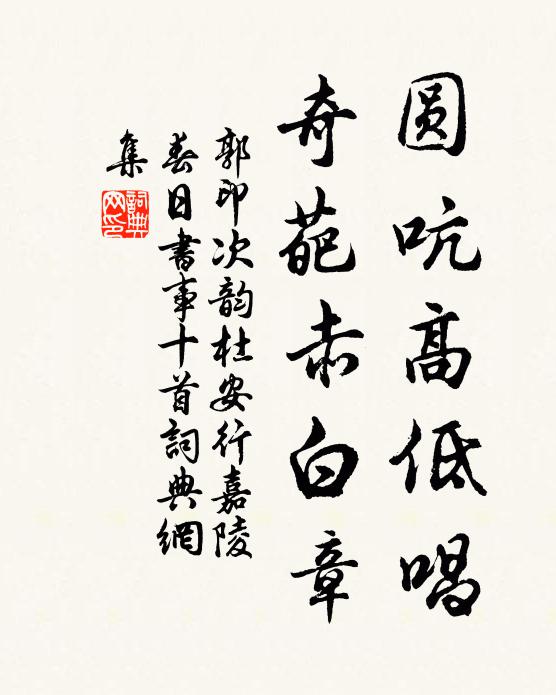 圆吭高低唱
奇葩赤白章
郭印次韵杜安行嘉陵
春日書事十首詞典網
集
詞典
网印